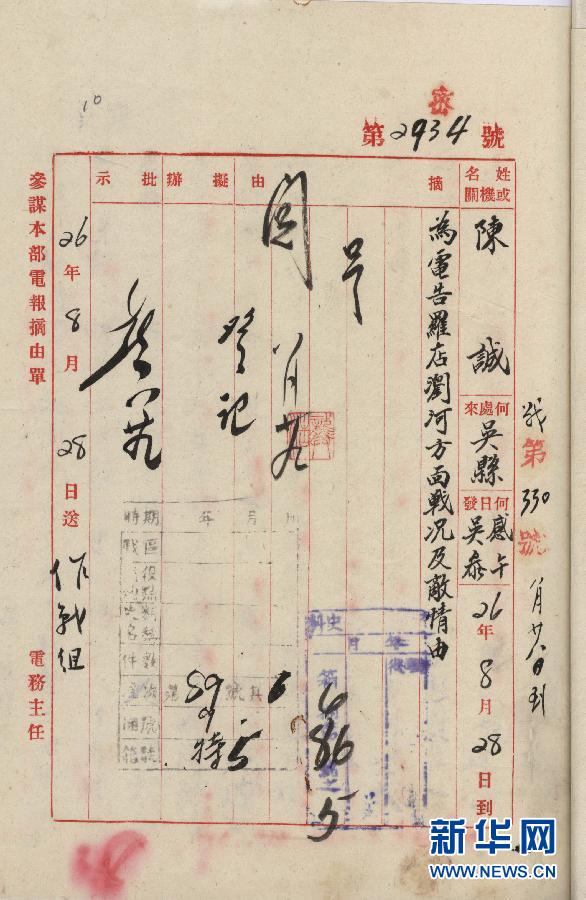 密
第2934號
10
战第330號
八月廿八日到
姓名或機關
陳誠
何處來
吳縣
何日發
感午
吳參
26年8月28日到
摘由
為電告羅店瀏河方面戰況及敵情由
擬辦
閱
八月廿九
登記
批示
八廿九
26年8月28日送
作戰組
參謀本部電報摘由單
電務主任
時期
年月
戰區
件數
史料
年月
6
59
特5
486
5
新华网
WWW.NEWS.CN